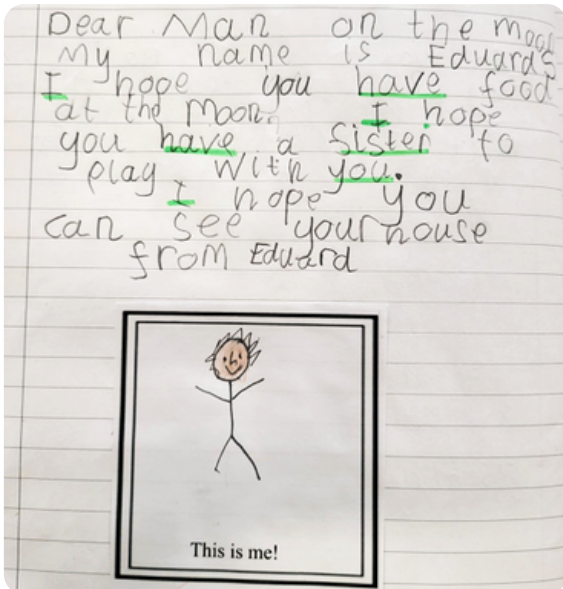 Dear Man on the moon
My name is Eduards
I hope you have food
at the moon. I hope
you have a sister to
play with you.
I hope you
can see your house
from Eduard
This is me!